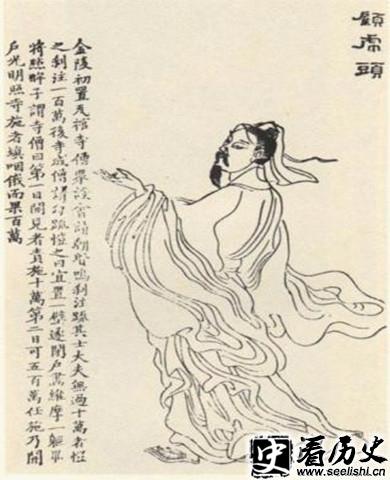 顧虎頭
金陵初置瓦棺寺僧眾設會請朝賢鳴剎注疏其士大夫無過十萬者愷
之剎注一百萬後寺成僧請勾疏愷之曰宜置一壁遂閉戶畫維摩一軀畢
將點眸子謂寺僧曰第一日開見者責施十萬第二日可五百萬任施乃開
戶光明照寺施者填咽俄而果百萬
史 看历史
www.seelishi.cn